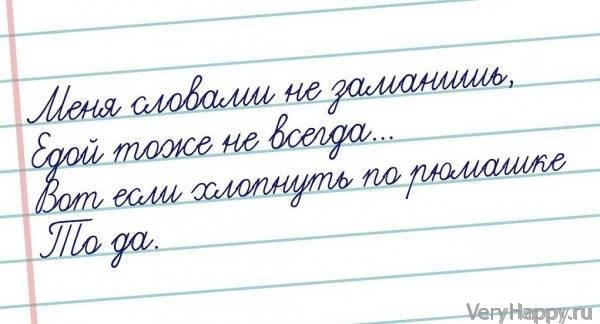 Меня словами не заманишь,
Едой тоже не всегда...
Вот если хлопнуть по рюмашке
То да.
VeryHappy.ru